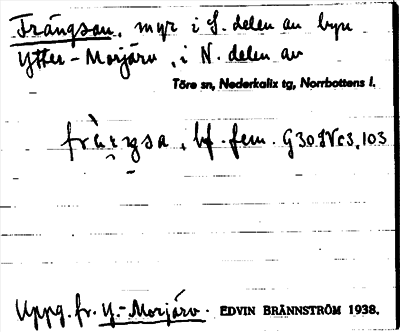 Trängsan, myr i S. delen av byn
Ytter-Morjärv, i N. delen av
Töre sn, Nederkalix tg, Norrbottens l.
bf. fem. G30 SV c3, 103
Uppg. fr. Y.-Morjärv. EDVIN BRÄNNSTRÖM 1938.